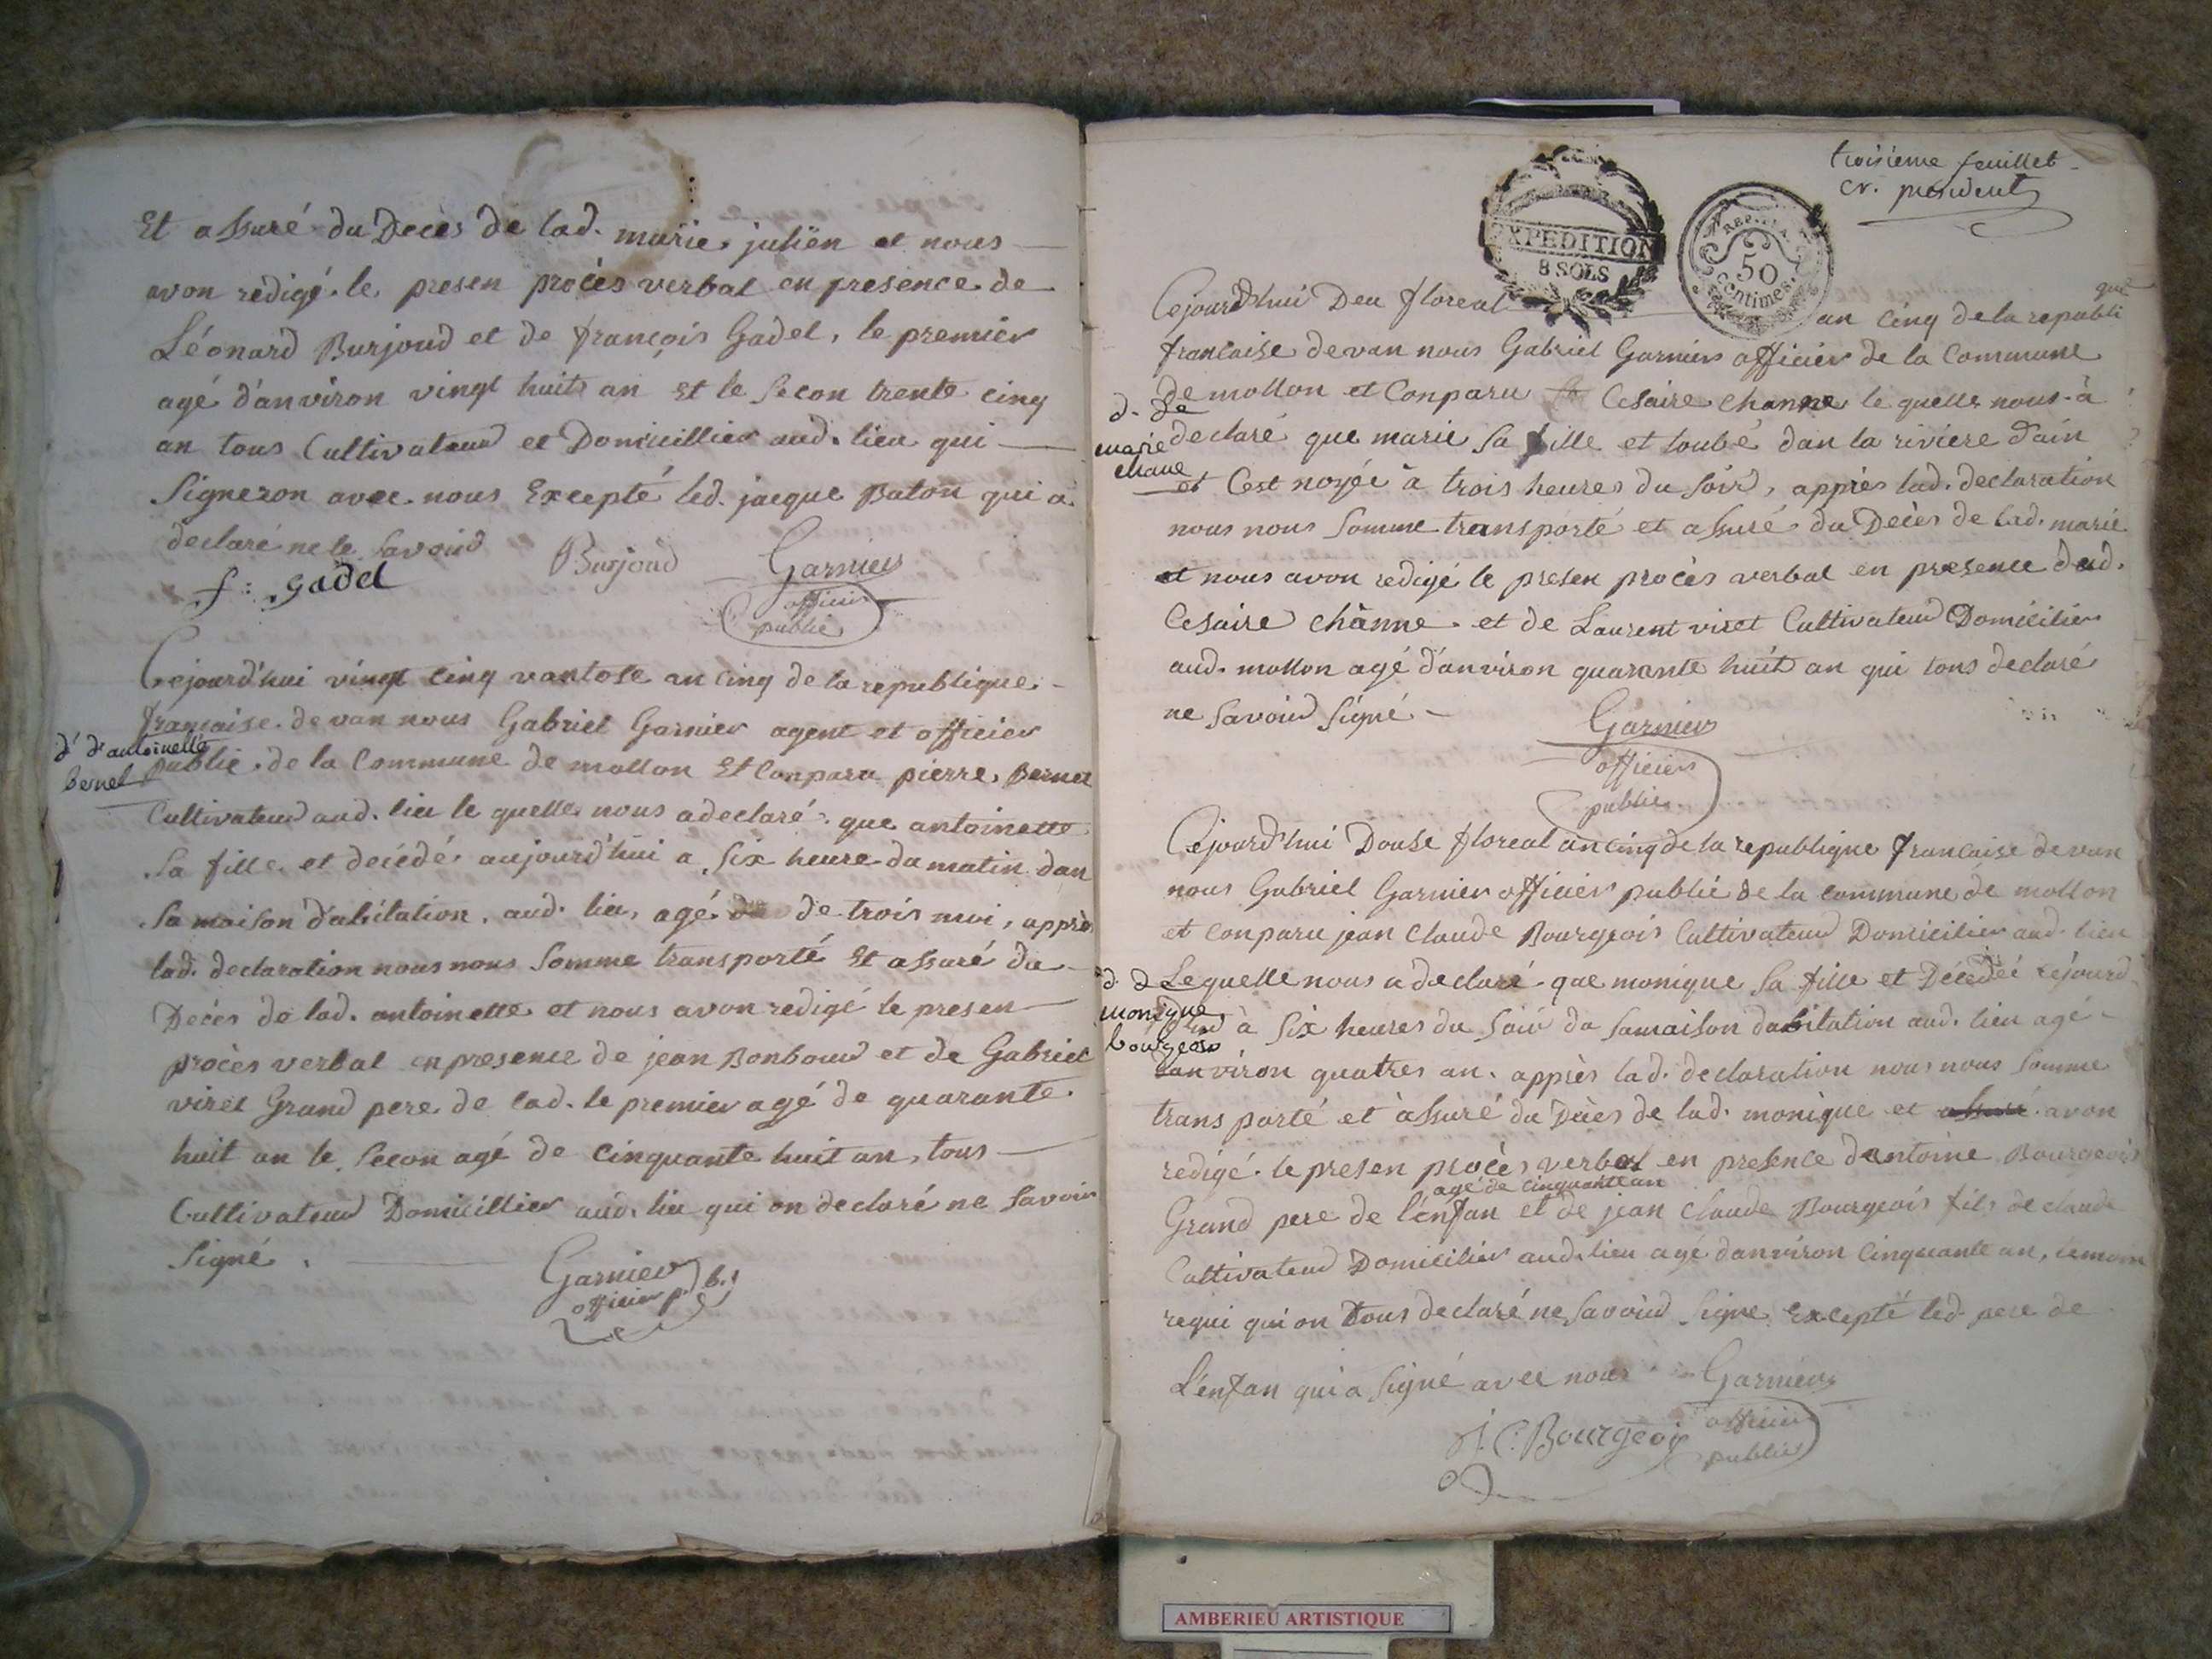 Et assuré du Decès de lad. marie julien et nous
avon redigé le presen procès verbal en presence de
Léonard Burjoud et de françois Gadel, le premier
agé d'anviron vingt huit an Et le Secon trente cinq
an tous Cultivateud et Domicillier aud. lieu qui
Signeron avec nous Excepté led. jacque Baton qui a
declaré ne le Savoird
f: gadel
Burjoud
Garnier
officier
public
Cejourd'hui vingt cinq vantose an cinq de la republique
française devan nous Gabriel Garnier agent et officier
d. d'antoinette
bernet
public de la Commune de mollon Et Conparu pierre Bernet
Cultivateud aud. lieu le quelle nous a declaré que antoinette
Sa fille et decédé aujourd'hui a Six heure du matin dan
Sa maison d'abitation aud. lieu, agé de trois moi, apprès
lad. declaration nous nous Somme transporté Et assuré du
Decès de lad. antoinette et nous avon redigé le presen
procès verbal en presence de jean Bonboud et de Gabriel
viret Grand pere de lad. le premier agé de quarante
huit an le Secon agé de Cinquante huit an, tous
Cultivateud Domicillier aud. lieu qui on declaré ne Savoir
Signé.
Garnier
officier p.b.
troisieme feuillet
president
EXPEDITION
8 SOLS
REP. FRA.
50
Centimes
Cejourd'hui Deu floreal an Cinq de la republi
que
francaise devan nous Gabriel Garnier officier de la Commune
de mollon et Conparu Cesaire channe le quelle nous à
d. de
marie
chane
declaré que marie Sa fille et tonbé dan la riviere d'ain
et C'est noyée à trois heures du Soird, apprès lad. declaration
nous nous Somme transporté et assuré du Decès de lad. marie
et nous avon redigé le presen procès verbal en presence dud.
Cesaire chànne et de Laurent viret Cultivateud Domicilier
aud. mollon agé d'anviron quarante huit an qui tons declaré
ne Savoird Signé
Garnier
officier
public
Cejourd'hui Douse floreal an cinq de la republique francaise devan
nous Gabriel Garnier officier public de la commune de mollon
et conparu jean Claude Bourgeois Cultivateud Domicilier aud. lieu
d. de
monique
bourgeois
Lequelle nous a declaré que monique Sa fille et Décedéé cejourd
à Six heures du Soird da Samaison dabitation aud. lieu agé
d'anviron quatres an. apprès lad. declaration nous nous Somme
transporté et àssuré du Dèces de lad. monique et assuré avon
redigé le presen procès verbal en presence dantoine Bourgeois
agé de cinquante an
Grand pere de l'énfan et de jean Claude Bourgeois fils de claude
Cultivateud Domicilier aud. lieu agé danviron Cinquante an,
requi qui on Tous declaré ne Savoird Signe Excepté led. pere de
L'enfan qui a Signé avec nous
Garnier
officier
public
J. C. Bourgeois
AMBERIEU ARTISTIQUE